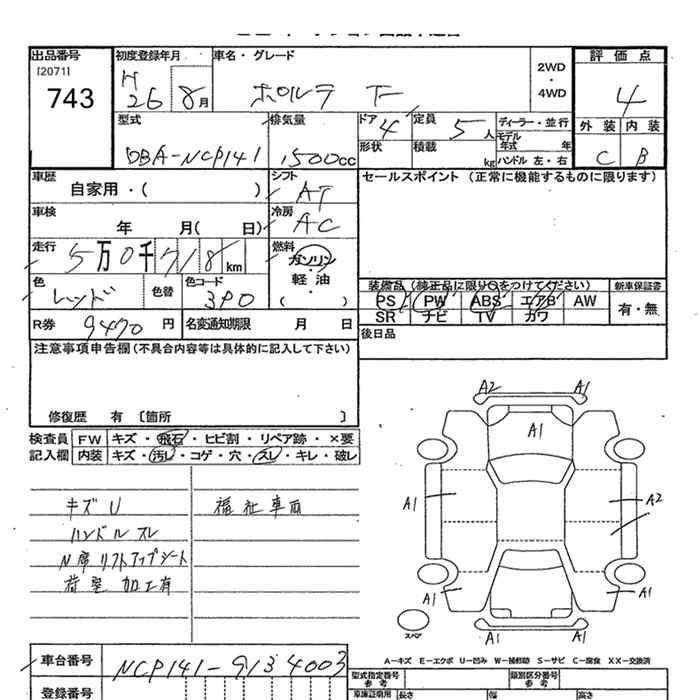 出品番号 初度登録年月 車名・グレード 評価点
[2071]
743
H 26 8月 ポルテ F
2WD
・
4WD
4
外装 内装
C B
型式 排気量 ドア 定員 ディーラー・並行
DBA-NCP141 1500cc 4 5人 モデル年式 年
形状 積載 kg ハンドル 左・右
車歴 シフト セールスポイント(正常に機能するものに限ります)
自家用・( ) AT
車検 冷房
年 月( 日) AC
走行 燃料
5万0千718km ガソリン
・
軽油
( )
色 色替 色コード
レッド 3P0
装備品(純正品に限り○をつけてください) 新車保証書
PS PW ABS エアB AW 有・無
SR ナビ TV カワ
R券 9470円 名変通知期限 月 日
後日品
注意事項申告欄(不具合内容等は具体的に記入して下さい)
修復歴 有 〔箇所 〕
検査員 FW キズ・飛石・ヒビ割・リペア跡・×要
記入欄 内装 キズ・汚レ・コゲ・穴・スレ・キレ・破レ
キズU 福祉車両
ハンドルスレ
N席リフトアップシート
荷室加工有
A2 A1
A1
A1 A2
A1 A1
A1 A1
スペア
A-キズ E-エクボ U-凹み W-補修跡 S-サビ C-腐食 XX-交換済
車台番号 NCP141-9134003
型式指定番号 参考 類別区分番号 参考
登録番号 車庫証明用 長さ 幅 高さ